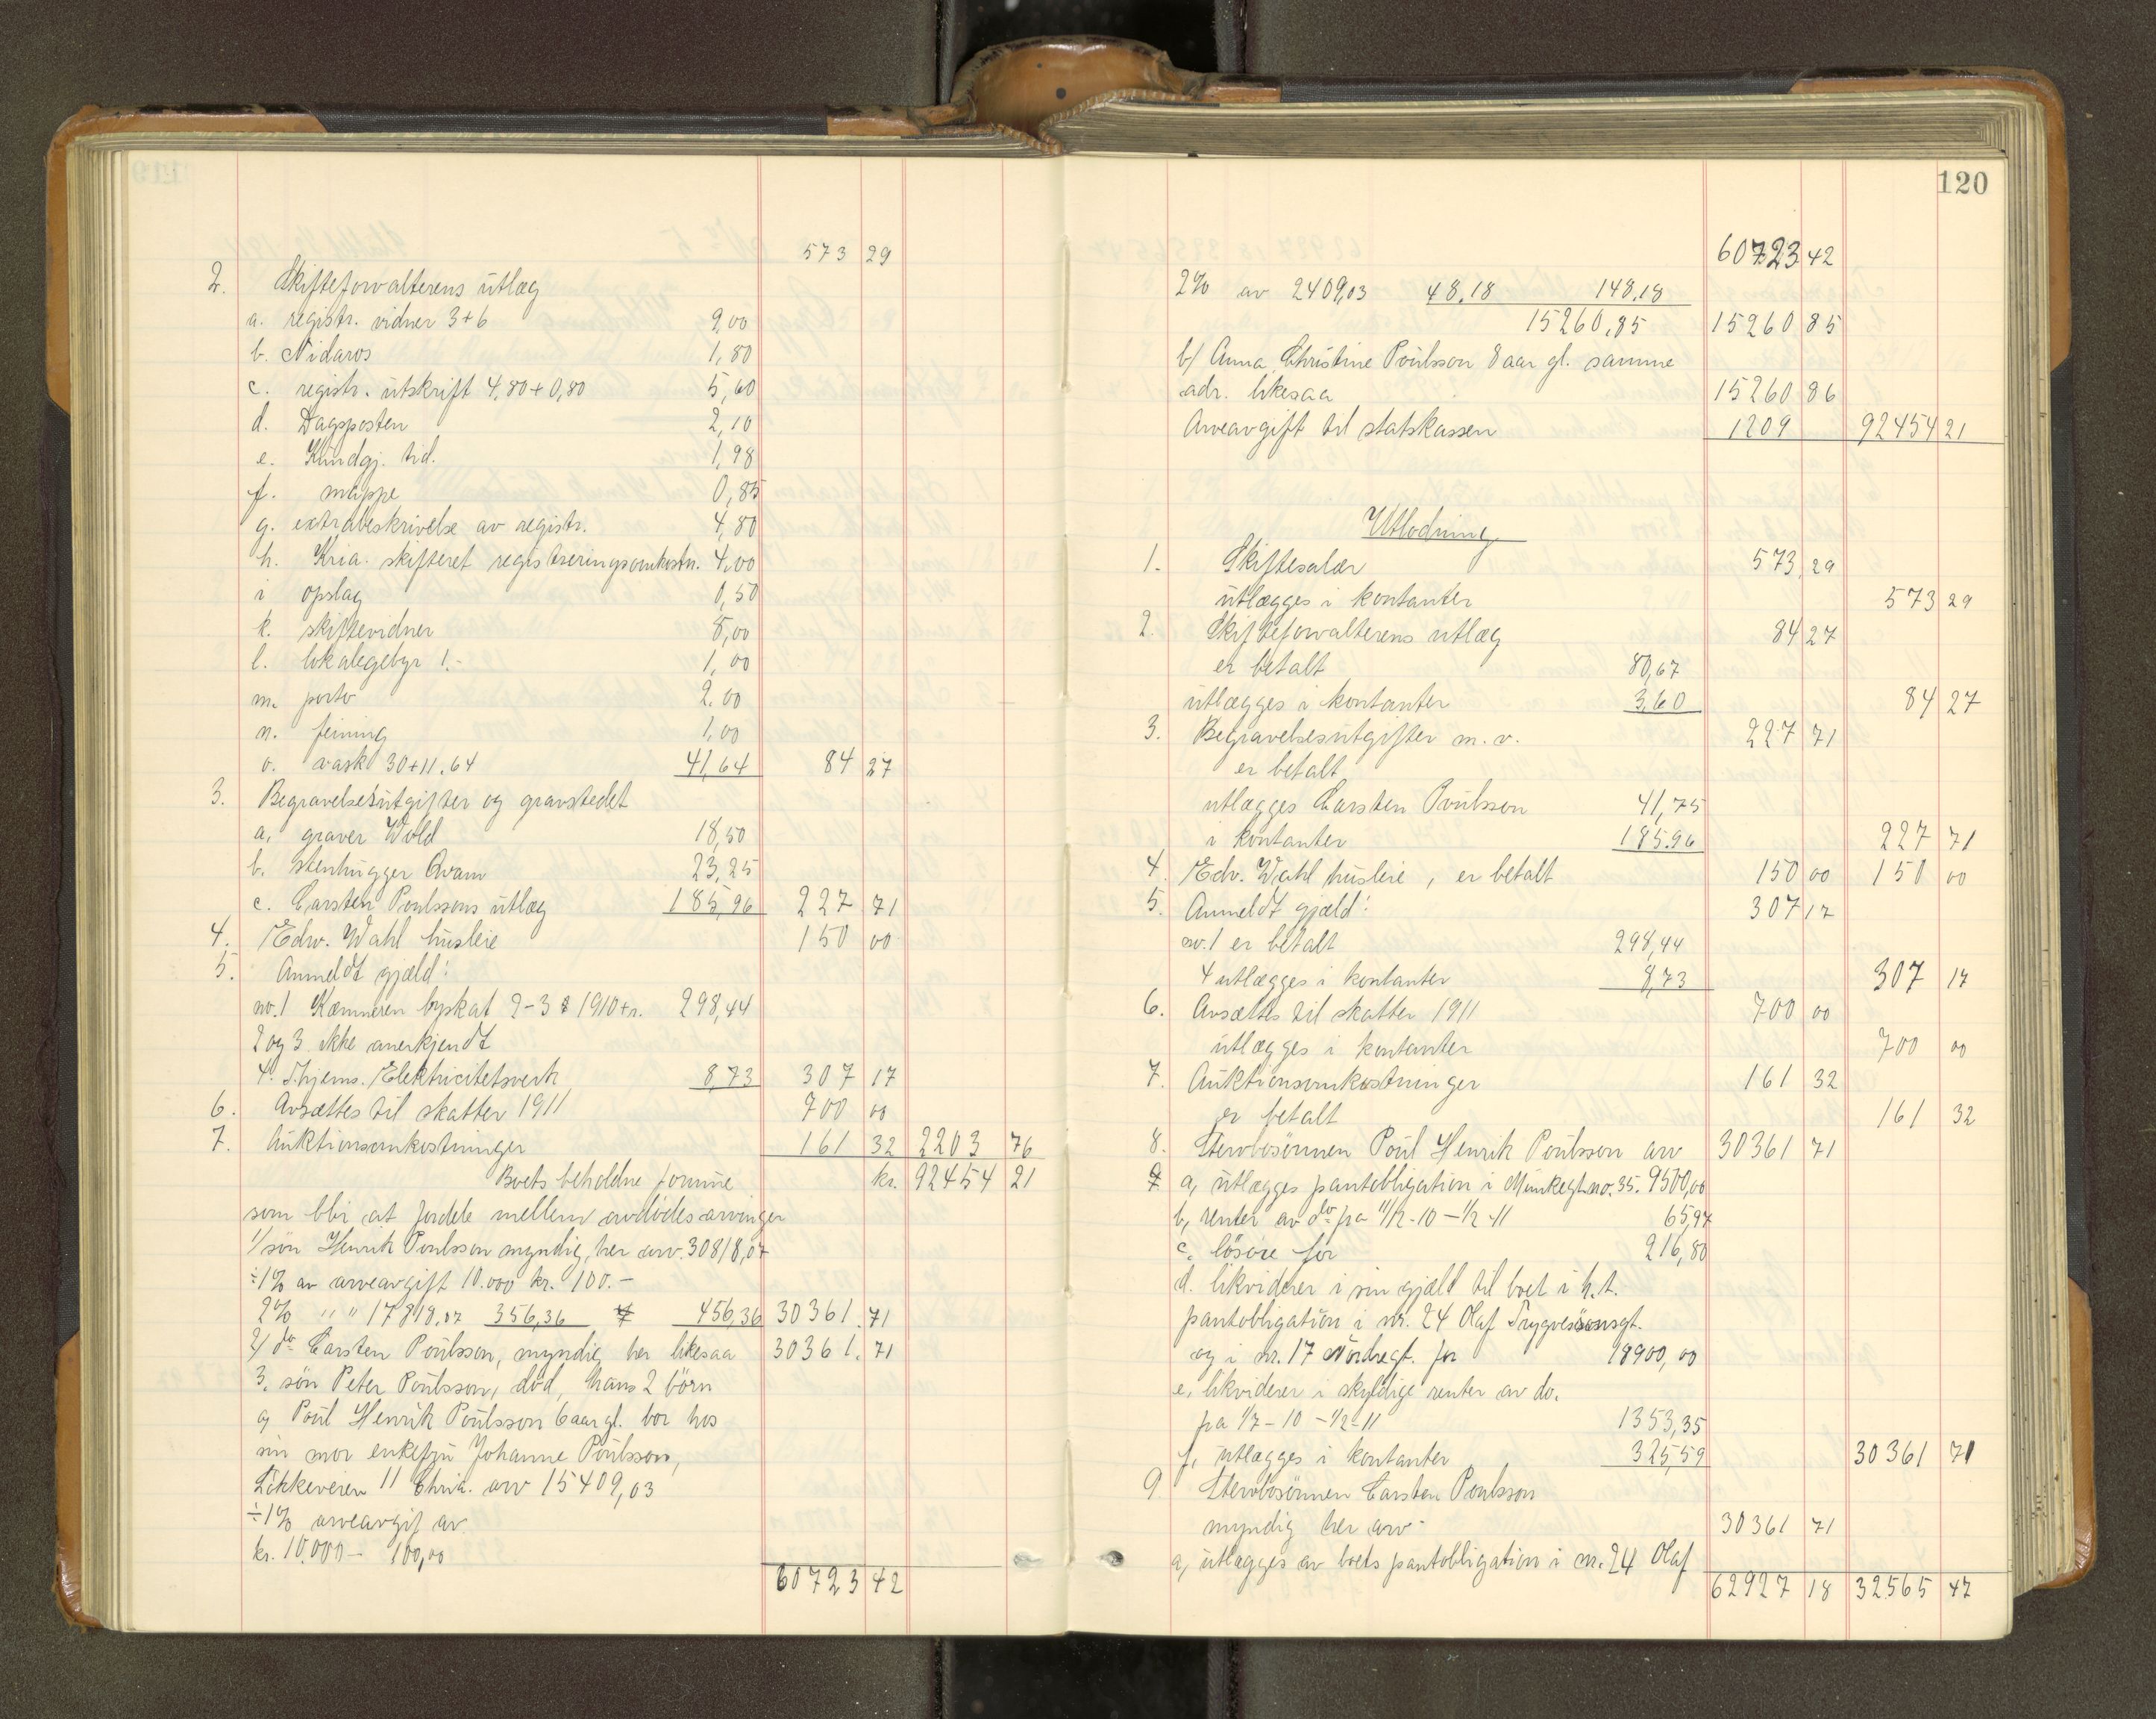 573 29
2. Skifteforvalterens utlæg
a. registr. vidner 3+6 9,00
b. Nidaros 1,80
c. registr. utskrift 4,80+0,80 5,60
d. Dagsposten 2,10
e. Kundgj. tid. 1,98
f. mappe 0,85
g. extrabeskrivelse av registr. 4,80
h. Kria. skifteret registreringsomkostn. 4,00
i opslag 0,50
k. skiftevidner 8,00
l. lokalegebyr 1.- 1,00
m. porto 2,00
n. feining 1,00
o. vask 30+11.64 41,64 84 27
3. Begravelsesutgifter og gravstedet
a, graver Wold 18,50
b. stenhugger Qvam 23,25
c. Carsten Poulssons utlæg 185,96 227 71
4. Edw. Wahl husleie 150 00
5. Anmeldt gjæld:
no. 1 Kæmneren byskat 2-3 1910+r. 298,44
2 og 3 ikke anerkjendt
4. Thjems. Elektricitetsverk 8,73 307 17
6. Avsættes til skatter 1911 700 00
7. Auktionsomkostninger 161 32 2203 76
Boets beholdne formue kr. 92454 21
som blir at fordele mellem avdødes arvinger
1/ søn Henrik Poulsson myndig, her arv. 30818,07
÷1% av arveavgift 10.000 kr. 100.-
2% " " 17818,07 356,36 456,36 30361. 71
2/ do Carsten Poulsson, myndig her likesaa 30361. 71
3. søn Peter Poulsson, død, hans 2 børn
a, Poul Henrik Poulsson 6 aar gl. bor hos
sin mor enkefru Johanne Poulsson,
Løkkeveien 11 Chria. arv 15409,03
÷1% arveavgif av
kr. 10.000- 100,00
60723 42
120
60723 42
2% av 2409,03 48,18 148,18
15260,85 15260 85
b/ Anna Christine Poulsson 8 aar gl. samme
adr. likesaa 15260 86
Arveavgift til statskassen 1209 92454 21
Utlodning
1. Skiftesalær 573,29
utlægges i kontanter 573 29
2. Skifteforvalterens utlæg 84 27
er betalt 80,67
utlægges i kontanter 3,60 84 27
3. Begravelsesutgifter m.v. 227 71
er betalt
utlægges Carsten Poulsson 41,75
i kontanter 185.96 227 71
4. Edv. Wahl husleie, er betalt 150 00 150 00
5. Anmeldt gjæld: 307 17
no. 1 er betalt 298,44
4 utlægges i kontanter 8,73 307 17
6. Avsættes til skatter 1911 700 00
utlægges i kontanter 700 00
7. Auktionsomkostninger 161 32
er betalt 161 32
8. Stervbosønnen Poul Henrik Poulsson arv 30361 71
a, utlægges pantobligation i Munkegt. no. 35. 9500,00
b, renter av do fra 11/12-10 - 1/2-11 65,97
c. løsøre for 216,80
d. likviderer i sin gjæld til boet i h.t.
pantobligation i nr. 24 Olaf Trygvesønsgt.
og i nr. 17 Nordregt. for 18900,00
e, likviderer i skyldige renter av do.
fra 1/7-10 - 1/2-11 1353,35
f, utlægges i kontanter 325,59 30361 71
9. Stervbosønnen Carsten Poulsson
myndig her arv- 30361 71
a, utlægges av boets pantobligation i nr. 24 Olaf
62927 18 32565 47